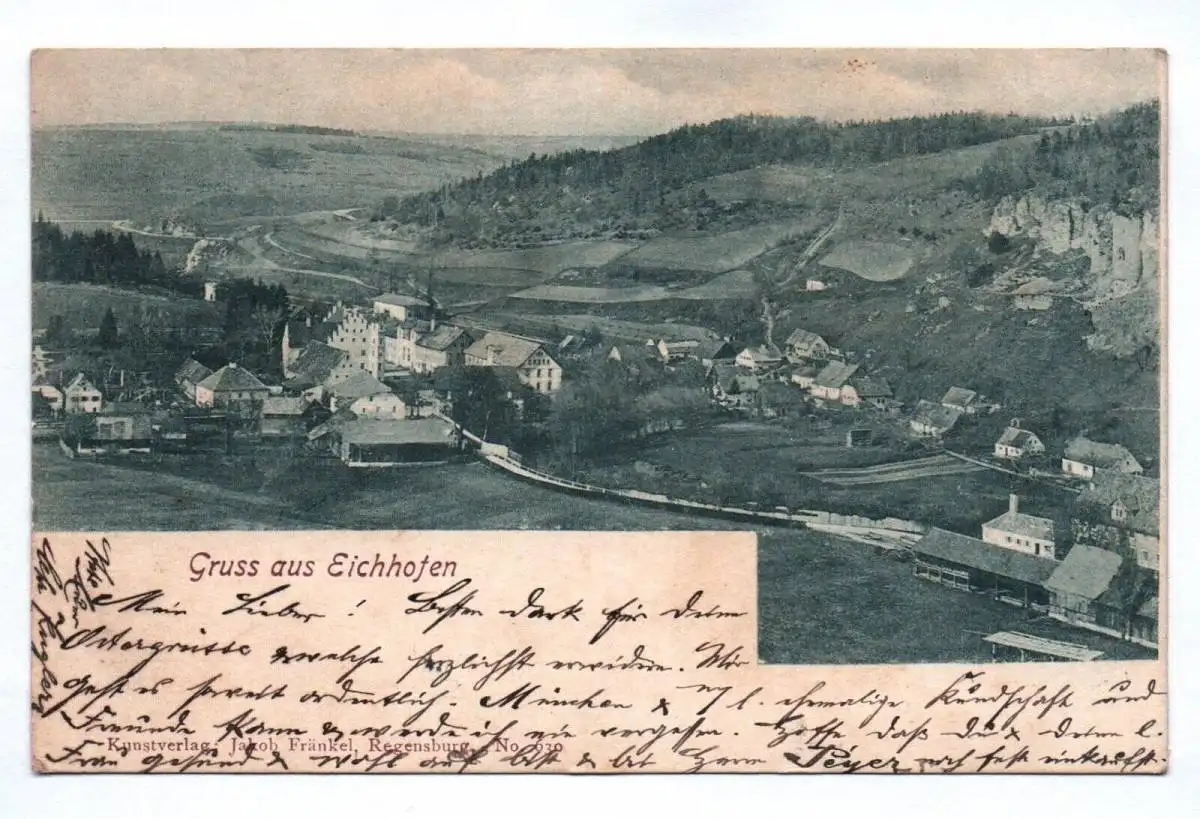 Gruss aus Eichhofen
Mein Lieber! Besten Dank für Deine
Ostergrüsse welche herzlichst erwidere. Mir
geht es soweit ordentlich. München & m/l. ehemalige Kundschaft und
Freunde kann & werde ich nie vergessen. Hoffe daß du & deine l.
Frau gesund & wohl auf bist & bei Herrn Peyer noch fest einkaufst.
Kunstverlag: Jakob Fränkel, Regensburg. No. 630